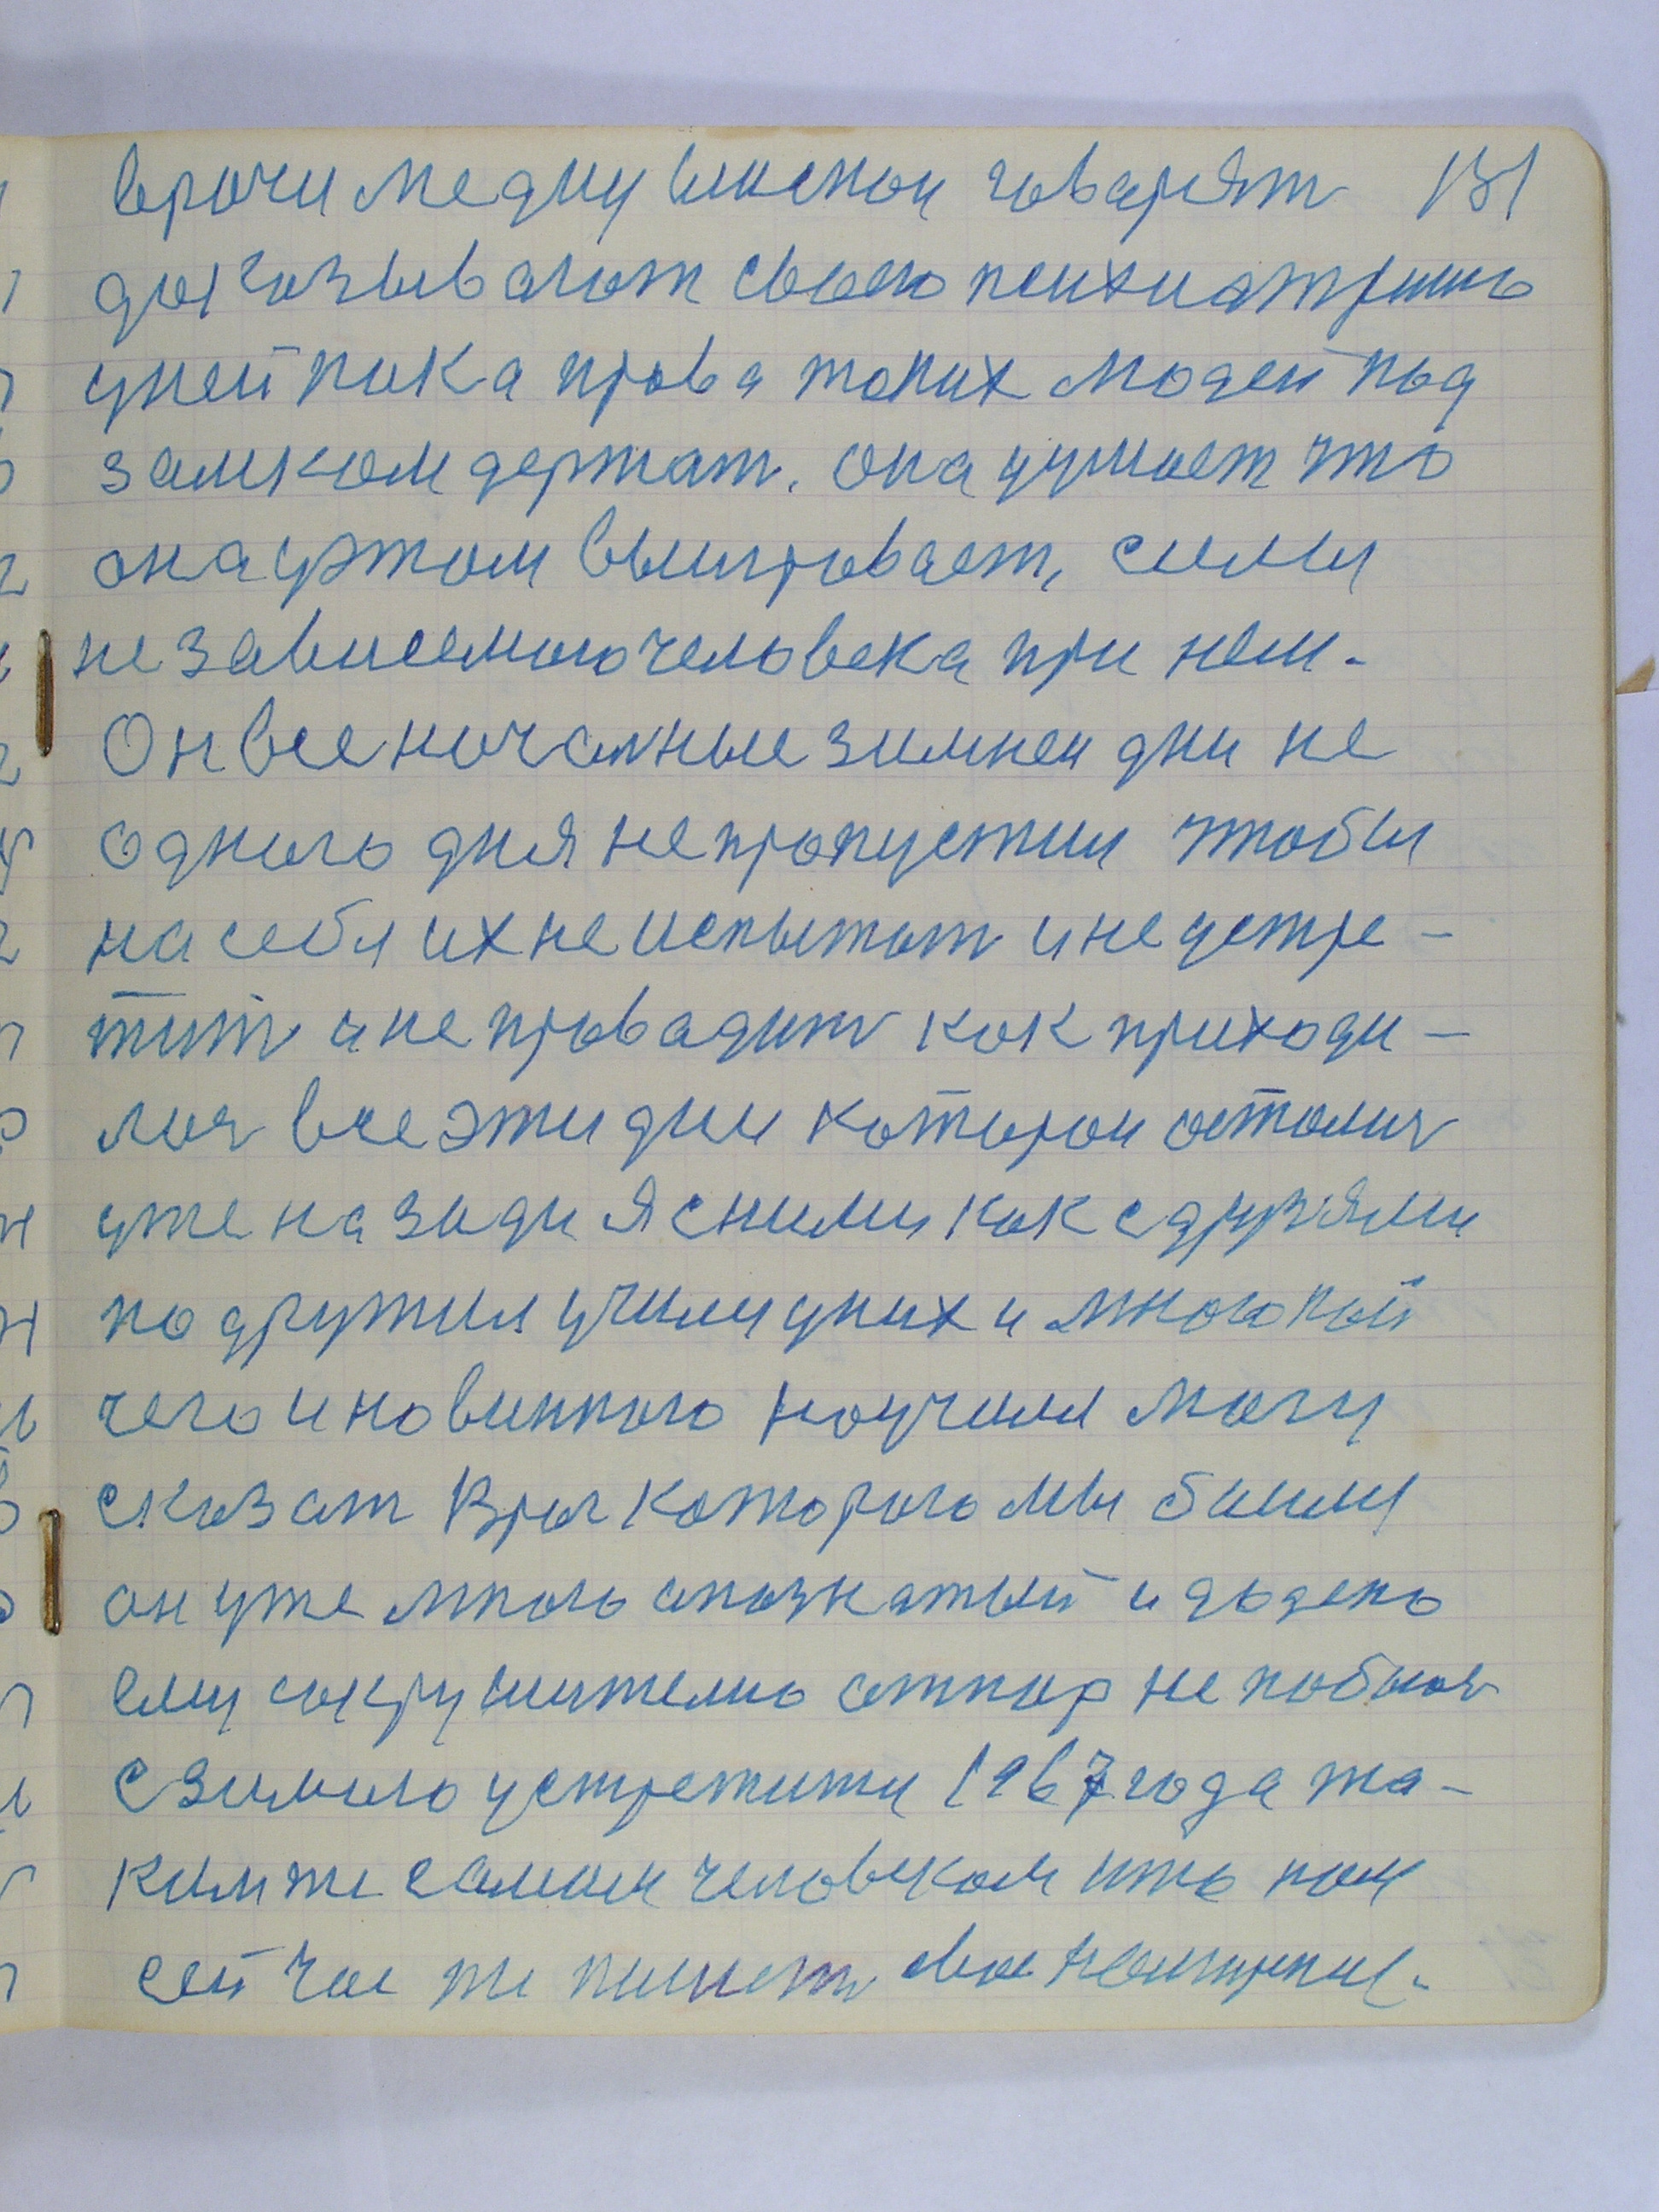 врочи медиц вликои говарят 131
докозывают свою психиатрию
у ней пока права таких людей под
замком держат. она думает что
она утом выигровает, силы
независемого человека при нем.
Он все началные зимнеи дни не
одного дня не пропустил чтобы
на себя их не испытат и не устре-
тит и не провадит как приходи-
лоя все эти дни котырои осталия
уже назади Я с ними как с друзями
подружил учили у них и многой
чего и новинного научили могу
сказат Враг которого мы били
он уже много опознатый и дадено
ему сокрушително отпор не побоол
с зимою устретити 1967 года та-
ким же самим человеком што пом
сейчас же пишет свое